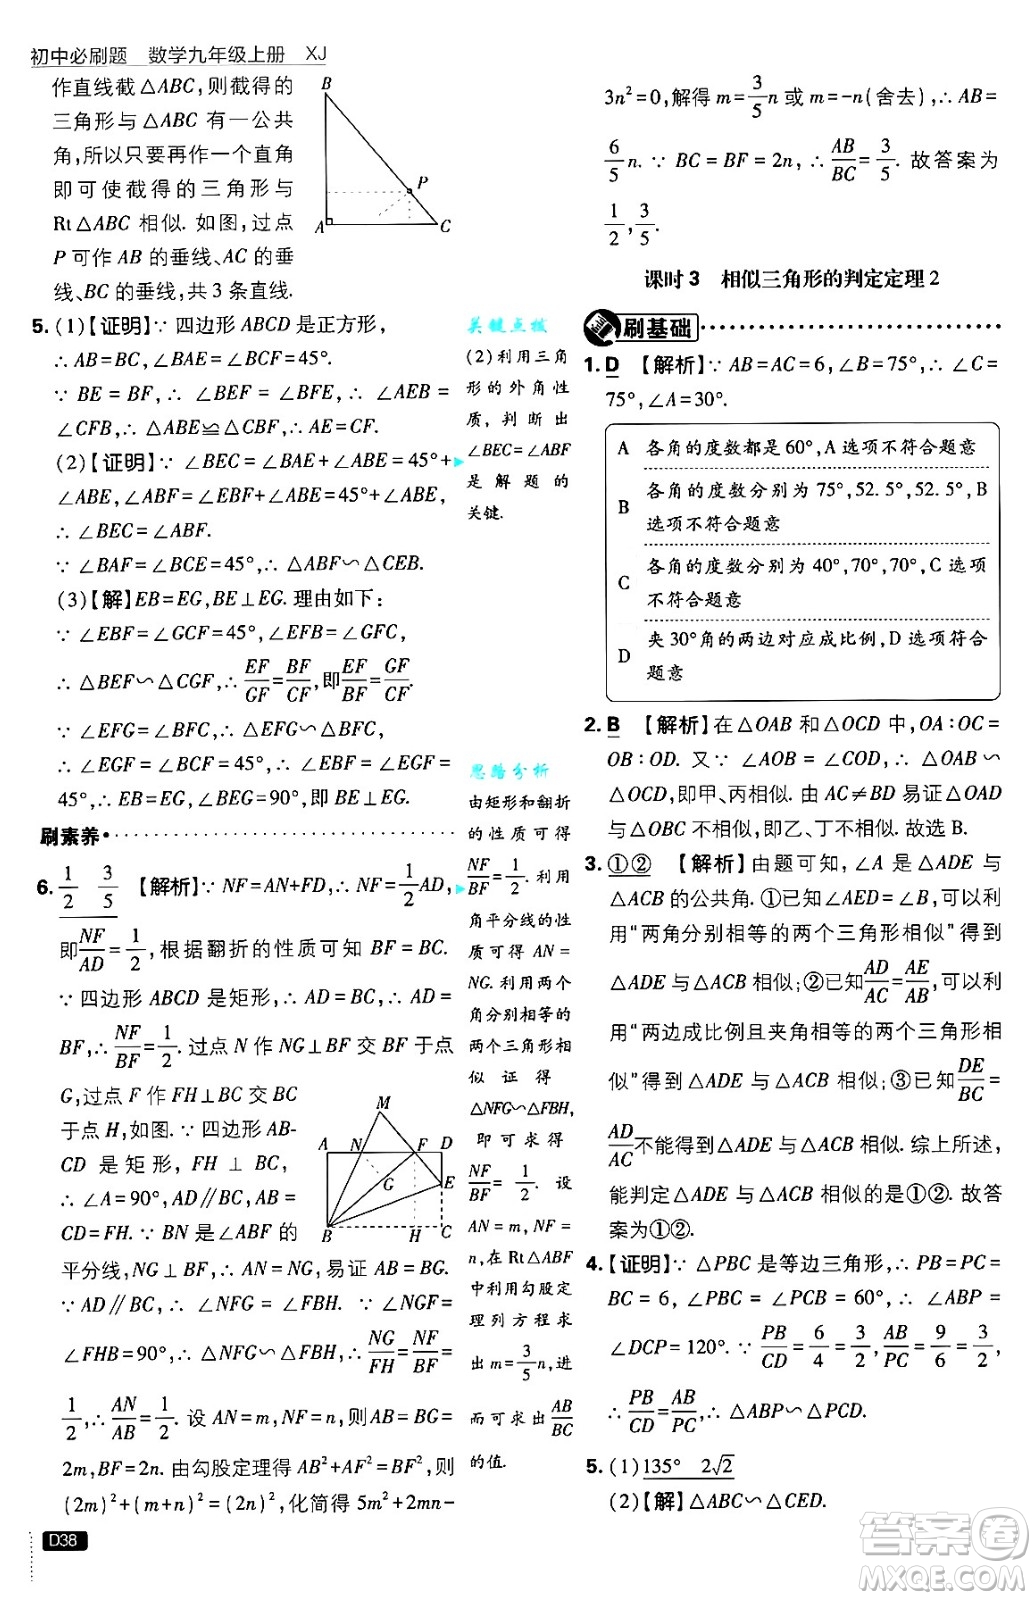 初中必刷题 数学九年级上册 XJ
作直线截△ABC,则截得的
三角形与△ABC有一公共
角,所以只要再作一个直角
即可使截得的三角形与
Rt△ABC相似. 如图,过点
P可作AB的垂线、AC的垂
线、BC的垂线,共3条直线.
B
P
A
C
5. (1)【证明】∵ 四边形ABCD是正方形,
∴ AB=BC, ∠BAE=∠BCF=45°.
∵ BE=BF, ∴ ∠BEF=∠BFE, ∴ ∠AEB=
∠CFB, ∴ △ABE≌△CBF, ∴ AE=CF.
(2)【证明】∵ ∠BEC=∠BAE+∠ABE=45°+
∠ABE, ∠ABF=∠EBF+∠ABE=45°+∠ABE,
∴ ∠BEC=∠ABF.
∵ ∠BAF=∠BCE=45°, ∴ △ABF∽△CEB.
(3)【解】EB=EG,BE⊥EG. 理由如下:
∵ ∠EBF=∠GCF=45°, ∠EFB=∠GFC,
∴ △BEF∽△CGF, ∴ EF/GF=BF/CF, 即EF/BF=GF/CF.
∵ ∠EFG=∠BFC, ∴ △EFG∽△BFC,
∴ ∠EGF=∠BCF=45°, ∴ ∠EBG=∠EGB=
45°, ∴ EB=EG, ∠BEG=90°,即BE⊥EG.
刷素养
6. 1/2 3/5 【解析】∵ NF=AN+FD, ∴ NF=1/2AD,
即NF/AD=1/2,根据翻折的性质可知BF=BC.
∵ 四边形ABCD是矩形, ∴ AD=BC, ∴ AD=
BF, ∴ NF/BF=1/2. 过点N作NG⊥BF交BF于点
G,过点F作FH⊥BC交BC
于点H,如图. ∵ 四边形AB-
CD是矩形, FH⊥BC,
∴ ∠A=90°,AD∥BC, ∴
CD=FH. ∵ BN是∠ABF的
M
A N F D
G E
B H C
平分线,NG⊥BF, ∴ AN=NG,易证AB=BG.
∵ AD∥BC, ∴ ∠NFG=∠FBH. ∵ ∠NGF=
∠FHB=90°, ∴ △NFG∽△FBH, ∴ NG/FH=NF/BF=
1/2, ∴ AN/AB=1/2. 设AN=m,NF=n,则AB=BG=
2m,BF=2n. 由勾股定理得AB²+AF²=BF²,即
(2m)²+(m+n)²=(2n)²,化简得5m²+2mn-
D38
关键点拨
(2)利用三角
形的外角性
质,判断出
∠BEC=∠ABF
是解题的
关键.
思路分析
由矩形和翻折
的性质可得
NF/BF=1/2. 利用
角平分线的性
质可得AN=
NG. 利用两个
角分别相等的
两个三角形相
似证得
△NFG∽△FBH,
即可求出
NF/BF=1/2. 设
AN=m,NF=
n,在Rt△ABF
中利用勾股定
理列方程求
出m=3/5n,进
而可求出AB/BC
的值.
3n²=0,解得m=3/5n或m=-n(舍去), ∴ AB=
6/5n. ∵ BC=BF=2n, ∴ AB/BC=3/5. 故答案为
1/2,3/5.
课时3 相似三角形的判定定理2
刷基础
1. D 【解析】∵ AB=AC=6,∠B=75°, ∴ ∠C=
75°,∠A=30°.
A 各角的度数都是60°,A选项不符合题意
B 各角的度数分别为75°,52.5°,52.5°,B
选项不符合题意
C 各角的度数分别为40°,70°,70°,C选项
不符合题意
D 夹30°角的两边对应成比例,D选项符合
题意
2. B 【解析】在△OAB和△OCD中,OA:OC=
OB:OD. 又∵ ∠AOB=∠COD, ∴ △OAB∽
△OCD,即甲、丙相似. 由AC≠BD易证△OAD
与△OBC不相似,即乙、丁不相似. 故选B.
3. ①② 【解析】由题可知,∠A是△ADE与
△ACB的公共角. ①已知∠AED=∠B,可以利
用“两角分别相等的两个三角形相似”得到
△ADE与△ACB相似;②已知AD/AC=AE/AB,可以利
用“两边成比例且夹角相等的两个三角形相
似”得到△ADE与△ACB相似;③已知DE/BC=
AD/AC不能得到△ADE与△ACB相似. 综上所述,
能判定△ADE与△ACB相似的是①②. 故答
案为①②.
4.【证明】∵ △PBC是等边三角形, ∴ PB=PC=
BC=6, ∠PBC=∠PCB=60°, ∴ ∠ABP=
∠DCP=120°. ∵ PB/CD=6/4=3/2, AB/PC=9/6=3/2,
∴ PB/CD=AB/PC, ∴ △ABP∽△PCD.
5. (1)135° 2√2
(2)【解】△ABC∽△CED.
答案卷